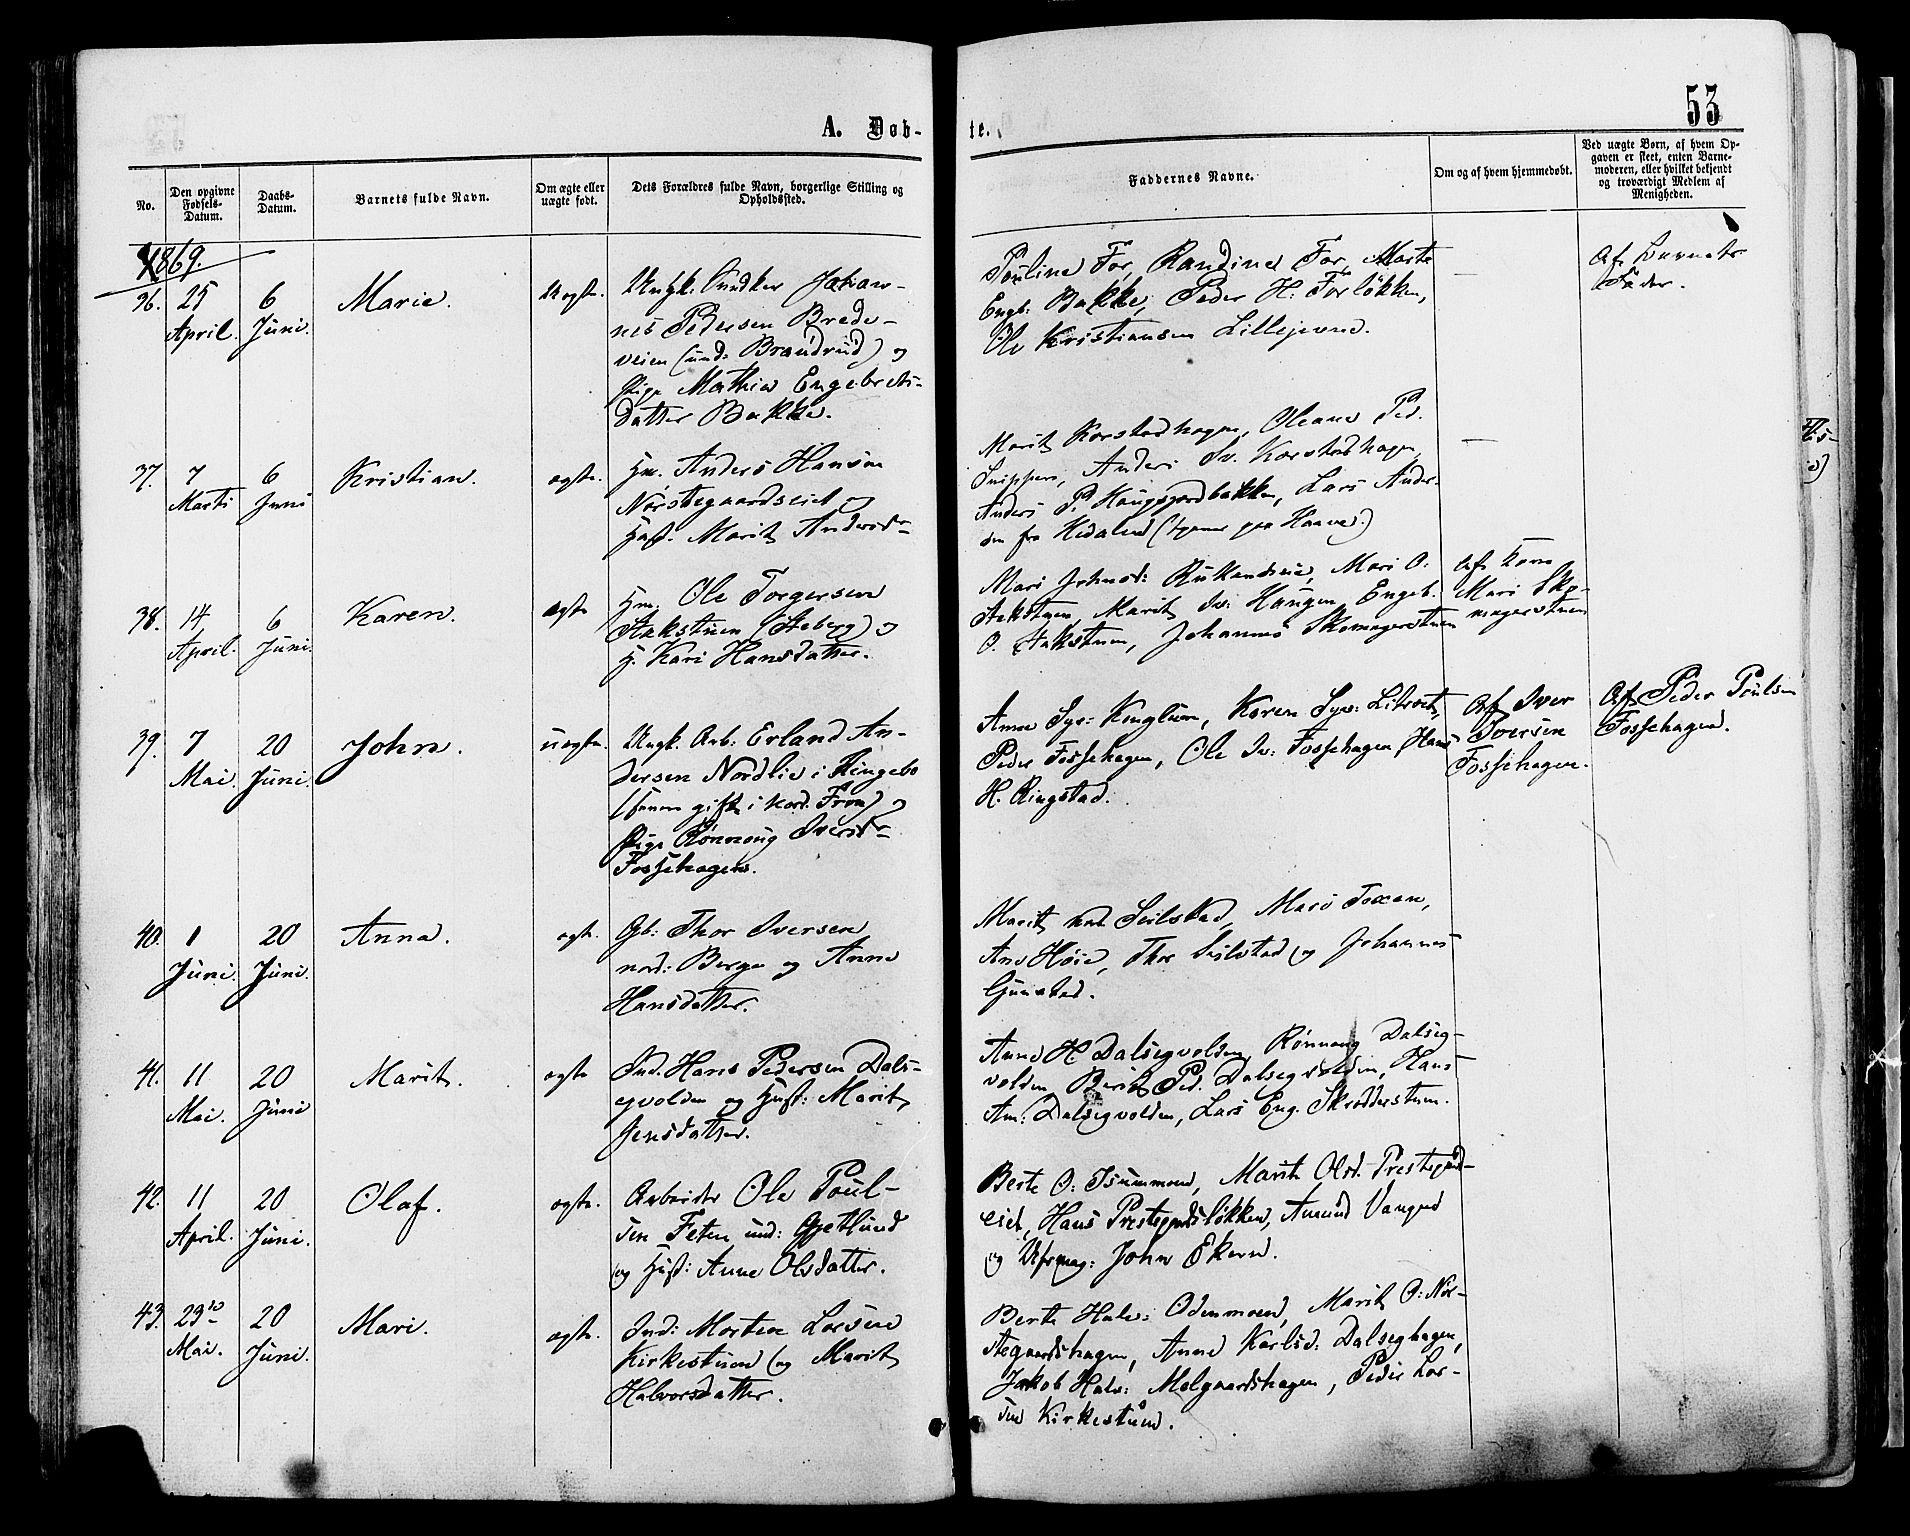 53
A. Døb-
te.
No.
Den opgivne Fødsels-Datum.
Daabs-Datum.
Barnets fulde Navn.
Om ægte eller uægte født.
Dets Forældres fulde Navn, borgerlige Stilling og Opholdssted.
Faddernes Navne.
Om og af hvem hjemmedøbt.
Ved uægte Børn, af hvem Op-
gaven er skeet, enten Barne-
moderen, eller hvilket bekjendt
og troværdigt Medlem af
Menigheden.
1869.
36. 25 April. 6 Juni. Marie. Uægte.
Ungk. Johan-
nes Pedersen Brede-
veien (und: Brandrud) og
Pige Mathia Engebrets-
datter Bakke.
Pauline For, Randine For, Marte
Engb: Bakke, Peder H. Forløkken,
Ole Kristiansen Lillejevne.
Af Barnets
Fader.
37. 7 Marti 6 Juni Kristian. ægte.
Hm. Anders Hansen
Norstegaardseiet og
Hust. Marit Andersdr
Marit Korstadhagen, Oleane Ped.
Snippen, Anders Sv. Korstadhagen
Anders P. Haugsgardbakken, Lars Ander-
sen fra Hedalen (tjener paa Haave.)
38. 14 April. 6 Juni. Karen. ægte
Hm. Ole Torgersen
Stakstuen (Steberg) og
H. Kari Hansdatter.
Mari Johnsd: Rukandseie, Mari O.
Stakstuen, Marit Sv: Haugen, Engeb.
O. Stakstuen, Johannes Skomagerstuen
Af Kone
Mari Sko-
magerstuen
39. 7 Mai. 20 Juni. John. uægte.
Ungk. Arb: Erland An-
dersen Nordlie i Ringebo
gift i Nord. Fron) og
Pige Rønnoug Iversdr
Fossehagen.
Anne Syv: Kinglum, Karen Syv: Listvet,
Peder Fossehagen, Ole Iv: Fossehagen, Hans
H. Ringstad.
Af Iver
Iversen
Fossehagen.
Af Peder Poulsen
Fossehagen.
40. 1 Juni. 20 Juni. Anna. ægte.
Gb: Thor Iversen
nord: Berge og Anne
Hansdatter.
Marit Seilstad, Mari Toxen,
Ane Høie, Thor Seilstad og Johannes
Gunstad.
41. 11 Mai. 20 Juni Marit. ægte
Ind. Hans Pedersen Dals-
egvolden og Hust: Marit
Jensdatter.
Anne H. Dalsegvolden, Rønnoug Dalseg-
volden, Berit Ped. Dalsegvolden, Hans
Am: Dalsegvolden, Lars Eng. Skrædderstuen.
42. 11 April. 20 Juni. Olaf. ægte.
Arbeider Ole Poul-
sen Feten und: Gjetlund
og Hust: Anne Olsdatter.
Berte O: Isummoen, Marit Olsd. Prestegard-
eiet, Hans Prestegardsløkken, Amund Vangen
og John Ekern.
43. 29de Mai. 20 Juni. Mari. ægte.
Ind: Morten Larsen
Kirkestuen og Marit
Halvorsdatter.
Berte Halv: Odenmoen, Marit O: Nor-
stegaardshagen, Anne Karlsd: Dalseghagen,
Jakob Halv: Melgaardshagen, Peder Lar-
sen Kirkestuen.